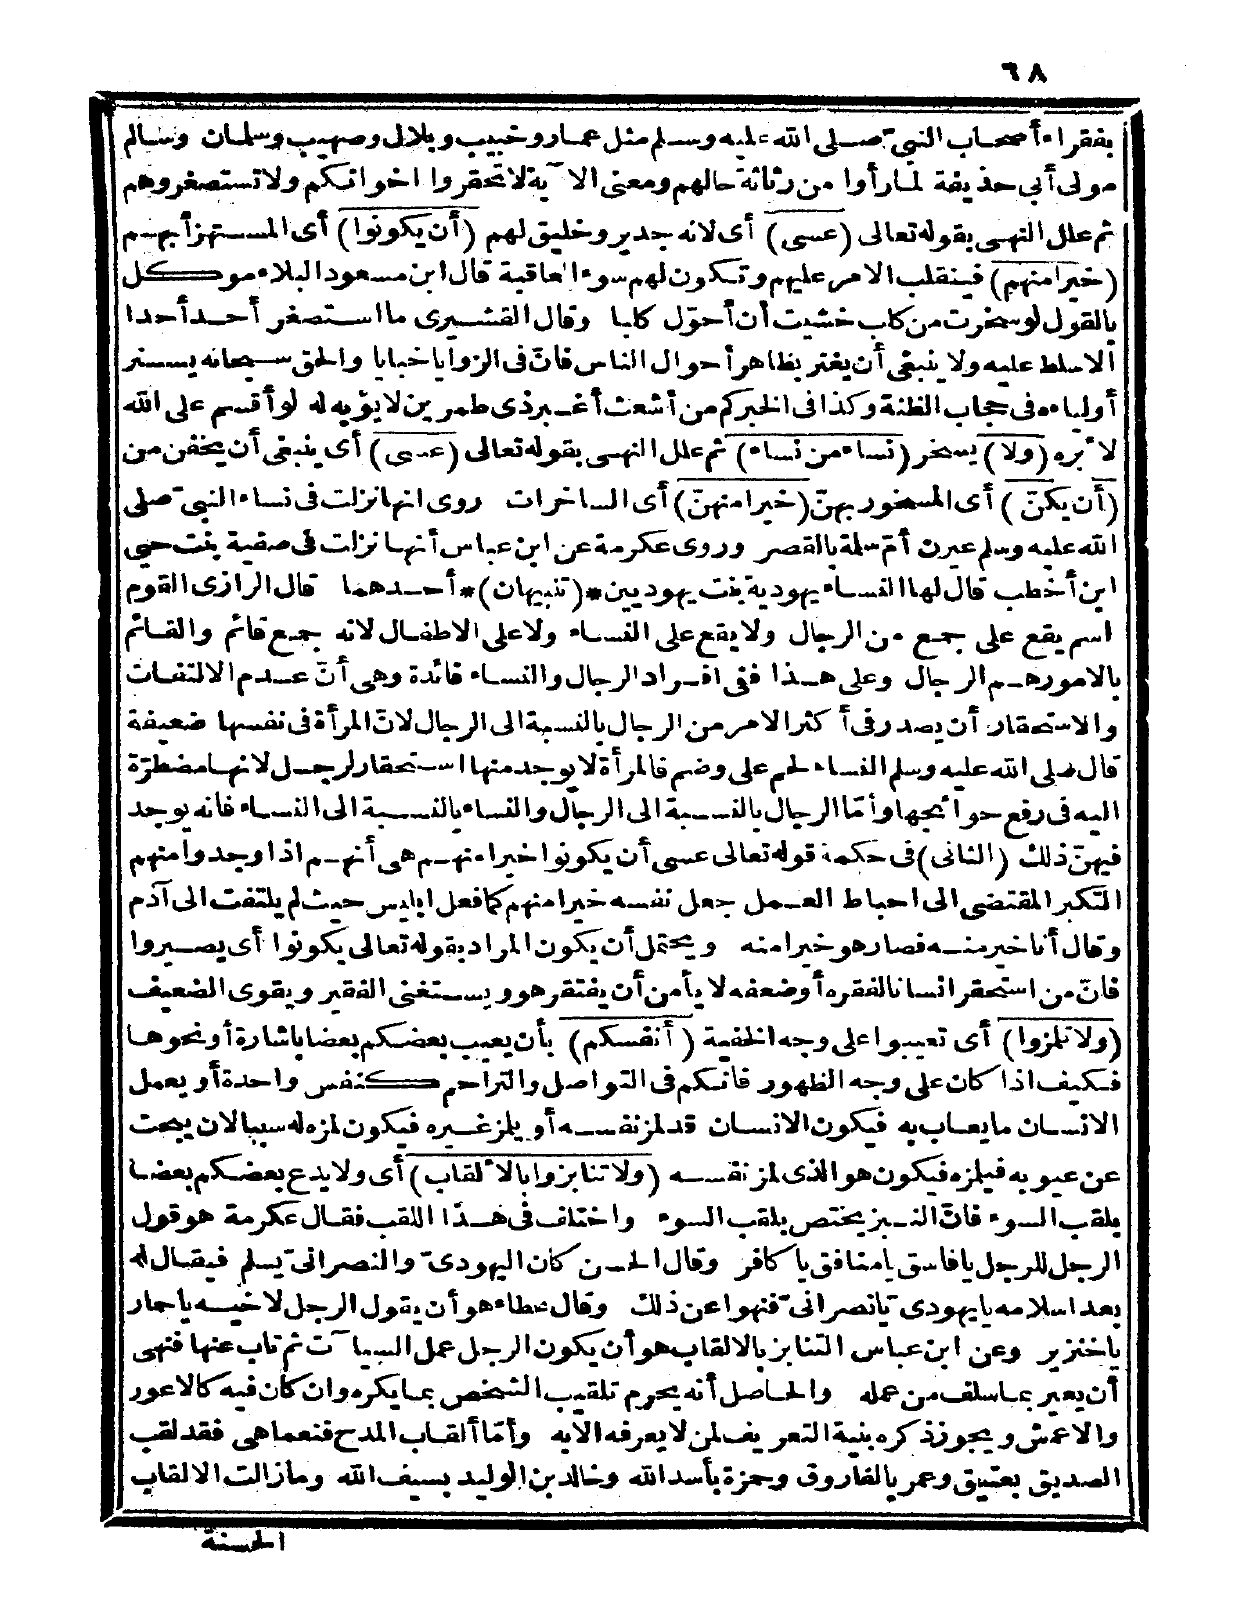 ٦٨
بفقراء أصحاب النبيّ صلى الله عليه وسلم مثل عمار وخبيب وبلال وصهيب وسلمان وسالم
مولى أبى حذيفة لما رأوا من رثاثة حالهم ومعنى الآية لا تحقروا اخوانكم ولا تستصغروهم
ثم علل النهى بقوله تعالى (عسى) أى لانه جدير وخليق لهم (أن يكونوا) أى المستهزأ بهم
(خيرا منهم) فينقلب الامر عليهم وتكون لهم سوء العاقبة قال ابن مسعود البلاء موكل
بالقول لو سخرت من كلب خشيت أن أحوّل كلبا وقال القشيرى ما استصغر أحد أحدا
الا سلط عليه ولا ينبغى أن يغتر بظاهر أحوال الناس فانّ فى الزوايا خبايا والحق سبحانه يستر
أولياءه فى حجاب الظنة وكذا فى الخبر كم من أشعث أغبر ذى طمرين لا يؤبه له لو أقسم على الله
لأبره (ولا) يسخر (نساء من نساء) ثم علل النهى بقوله تعالى (عسى) أى ينبغى أن يخفن من
(أن يكنّ) أى المسخور بهنّ (خيرا منهنّ) أى الساخرات روى انها نزلت فى نساء النبيّ صلى
الله عليه وسلم عيرن أمّ سلمة بالقصر وروى عكرمة عن ابن عباس أنها نزلت فى صفية بنت حيى
ابن أخطب قال لها النساء يهودية بنت يهوديين *(تنبيهان)* أحدهما قال الرازى القوم
اسم يقع على جمع من الرجال ولا يقع على النساء ولا على الاطفال لانه جمع قائم والقائم
بالامور هم الرجال وعلى هذا ففى افراد الرجال والنساء فائدة وهى أنّ عدم الالتفات
والاستحقار أن يصدر فى أكثر الامر من الرجال بالنسبة الى الرجال لانّ المرأة فى نفسها ضعيفة
قال صلى الله عليه وسلم النساء لحم على وضم فالمرأة لا يوجد منها استحقار لرجل لانها مضطرّة
اليه فى رفع حوائجها وأمّا الرجال بالنسبة الى الرجال والنساء بالنسبة الى النساء فانه يوجد
فيهنّ ذلك (الثانى) فى حكمة قوله تعالى عسى أن يكونوا خيرا منهم هى أنهم اذا وجدوا منهم
التكبر المقتضى الى احباط العمل جعل نفسه خيرا منهم كما فعل ابليس حيث لم يلتفت الى آدم
وقال أنا خير منه فصار هو خيرا منه ويحتمل أن يكون المراد بقوله تعالى يكونوا أى يصيروا
فانّ من استحقر انسانا لفقره أو ضعفه لا يأمن أن يفتقر هو ويستغنى الفقير ويقوى الضعيف
(ولا تلمزوا) أى تعيبوا على وجه الخفية (أنفسكم) بأن يعيب بعضكم بعضا باشارة أو نحوها
فكيف اذا كان على وجه الظهور فانكم فى التواصل والتراحم كنفس واحدة أو يعمل
الانسان ما يعاب به فيكون الانسان قد لمز نفسه أو يلمز غيره فيكون لمزه له سببا لان يبحث
عن عيوبه فيلمزه فيكون هو الذى لمز نفسه (ولا تنابزوا بالألقاب) أى ولا يدع بعضكم بعضا
بلقب السوء فانّ النبز يختص بلقب السوء واختلف فى هذا اللقب فقال عكرمة هو قول
الرجل للرجل يا فاسق يا منافق يا كافر وقال الحسن كان اليهودىّ والنصرانىّ يسلم فيقال له
بعد اسلامه يا يهودىّ يا نصرانىّ فنهوا عن ذلك وقال عطاء هو أن يقول الرجل لاخيه يا حمار
يا خنزير وعن ابن عباس التنابز بالالقاب هو أن يكون الرجل عمل السيآت ثم تاب عنها فنهى
أن يعير بما سلف من عمله والحاصل أنه يحرم تلقيب الشخص بما يكره وان كان فيه كالاعور
والاعمش ويجوز ذكره بنية التعريف لمن لا يعرفه الا به وأمّا ألقاب المدح فنعما هى فقد لقب
الصديق بعتيق وعمر بالفاروق وحمزة بأسد الله وخالد بن الوليد بسيف الله وما زالت الالقاب
الحسنة